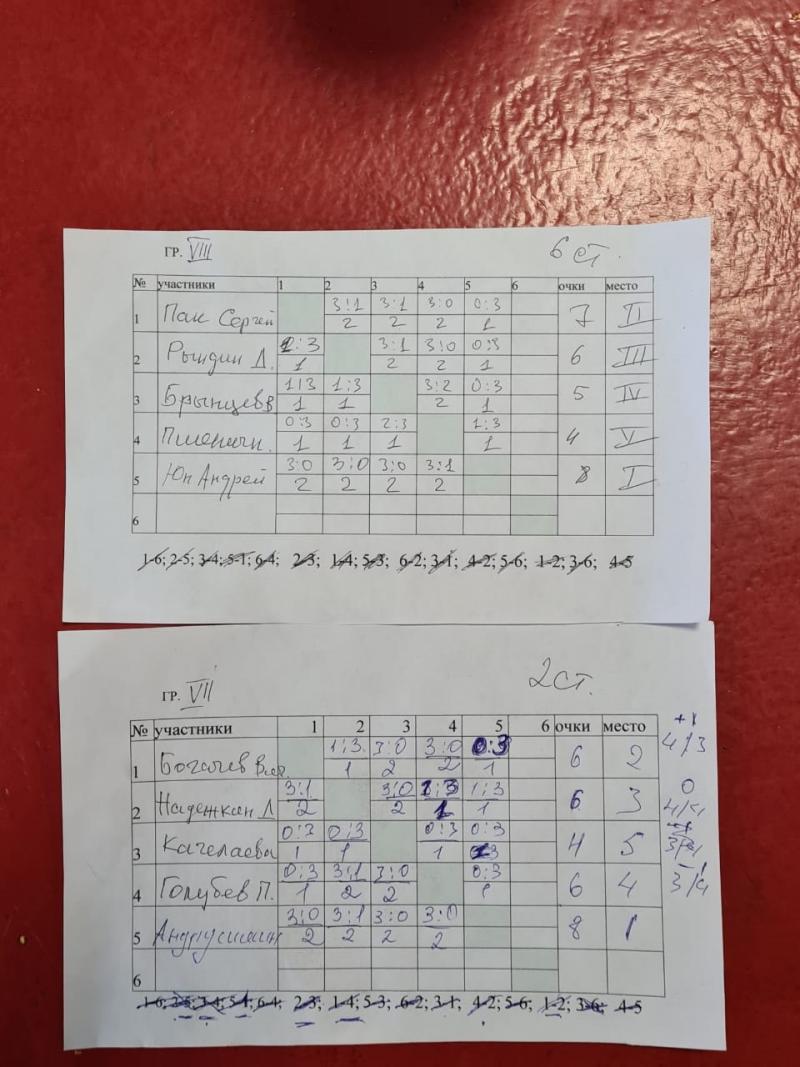 ГР. VIII 6 ст.
№ участники 1 2 3 4 5 6 очки место
1 Пак Сергей 3:1 3:1 3:0 0:3 7 II
2 2 2 1
2 Рындин Д. :3 3:1 3:0 0:3 6 III
1 2 2 1
3 Брынцев В 1:3 1:3 3:2 0:3 5 IV
1 1 2 1
4 Пшеничн. 0:3 0:3 2:3 1:3 4 V
1 1 1 1
5 Юн Андрей 3:0 3:0 3:0 3:1 8 I
2 2 2 2
6
1-6; 2-5; 3-4; 5-1; 6-4; 2-3; 1-4; 5-3; 6-2; 3-1; 4-2; 5-6; 1-2; 3-6; 4-5
ГР. VII 2 ст.
№ участники 1 2 3 4 5 6 очки место
+1
1 Богачев Вл. 1:3 3:0 3:0 0:3 6 2 4/3
1 2 2 1
2 Надежкин Л 3:1 3:0 1:3 1:3 6 3 0
2 2 1 1 4/4
3 Качелаева 0:3 0:3 0:3 0:3 4 5
1 1 1
-1
4 Голубев П. 0:3 3:1 3:0 0:3 6 4 3/4
1 2 2 1
5 3:0 3:1 3:0 3:0 8 1
2 2 2 2
6
1-6; 2-5; 3-4; 5-1; 6-4; 2-3; 1-4; 5-3; 6-2; 3-1; 4-2; 5-6; 1-2; 3-6; 4-5